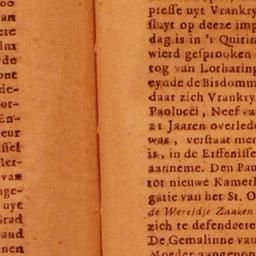 an
ere
de
ont
de-
or-
En-
eur
ssel
van
nge-
uyt
Stad
aand
nen
presse uyt Vrankry
sluyt op deeze imp
dag is in 't Quirin
wierd gesprooken
tog van Lotharing
eynde de Bisdomm
daar zich Vrankry
Paolucci, Neef va
21 Jaaren overlede
was, verstaat men
is, in de Erffenisse
aanneme. Den Pau
tot nieuwe Kamerl
gatie van het St. O
de Wereldse Zaaken
zich te defendeere
De Gemalinne van
Moeder aangenom